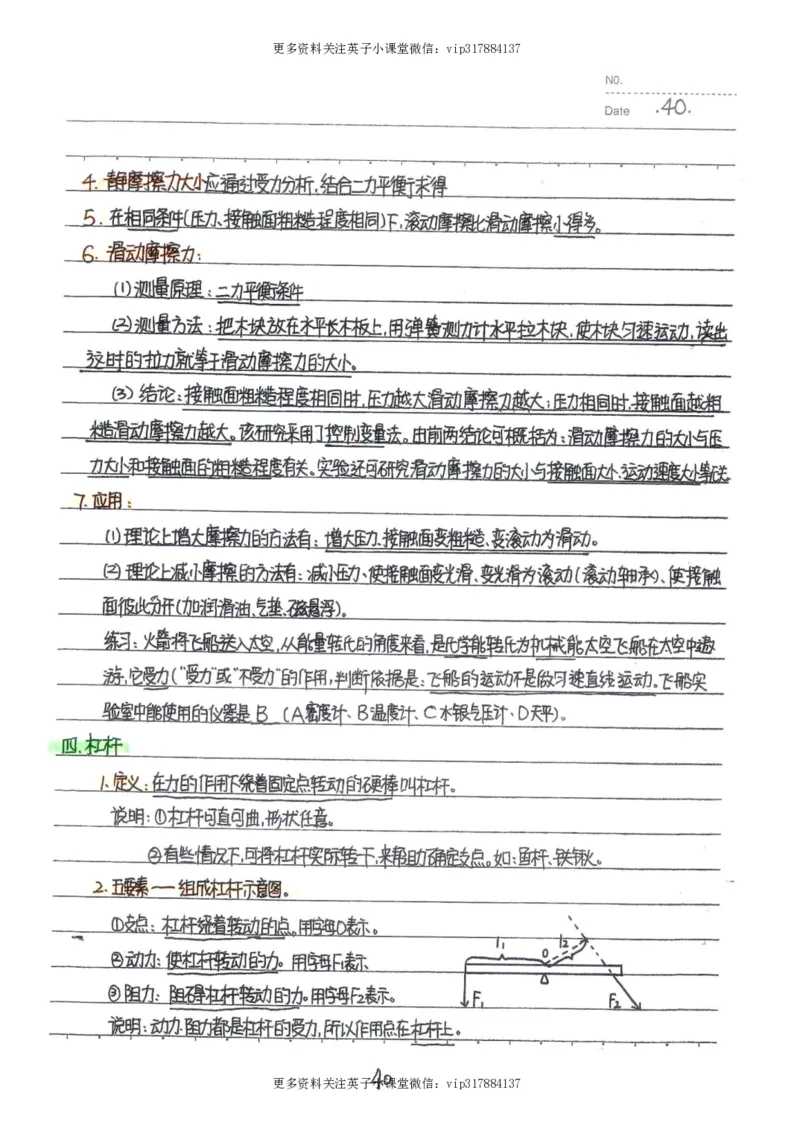 更多资料关注英子小课堂微信：vip317884137
NO.
Date .40.
4. 静摩擦力大小应通过受力分析,结合二力平衡求得
5. 在相同条件(压力、接触面粗糙程度相同)下,滚动摩擦比滑动摩擦小得多。
6. 滑动摩擦力:
(1)测量原理:二力平衡条件
(2)测量方法:把木块放在水平长木板上,用弹簧测力计水平拉木块,使木块匀速运动,读出
这时的拉力就等于滑动摩擦力的大小。
(3)结论:接触面粗糙程度相同时,压力越大滑动摩擦力越大;压力相同时,接触面越粗
糙滑动摩擦力越大。该研究采用了控制变量法。由前两结论可概括为:滑动摩擦力的大小与压
力大小和接触面的粗糙程度有关。实验还可研究滑动摩擦力的大小与接触面大小、运动速度大小等无关.
7. 应用:
(1)理论上增大摩擦力的方法有:增大压力、接触面变粗糙、变滚动为滑动。
(2)理论上减小摩擦的方法有:减小压力、使接触面变光滑、变光滑为滚动(滚动轴承)、使接触
面彼此分开(加润滑油、气垫、磁悬浮)。
练习:火箭将飞船送入太空,从能量转化的角度来看,是化学能转化为机械能太空飞船在太空中遨
游,它受力("受力"或"不受力"的作用,判断依据是:飞船的运动不是做匀速直线运动。飞船实
验室中能使用的仪器是 B (A密度计、B温度计、C水银气压计、D天平)。
四.杠杆
1.定义:在力的作用下绕着固定点转动的硬棒叫杠杆。
说明:①杠杆可直可曲,形状任意。
②有些情况下,可将杠杆实际转一下,来帮助确定支点。如:鱼杆、铁锹。
2.五要素——组成杠杆示意图。
①支点:杠杆绕着转动的点。用字母O表示。
②动力:使杠杆转动的力。用字母F₁表示
③阻力:阻碍杠杆转动的力。用字母F₂表示。
说明:动力、阻力都是杠杆的受力,所以作用点在杠杆上。
l₁ O l₂
F₁ F₂
40
更多资料关注英子小课堂微信：vip317884137